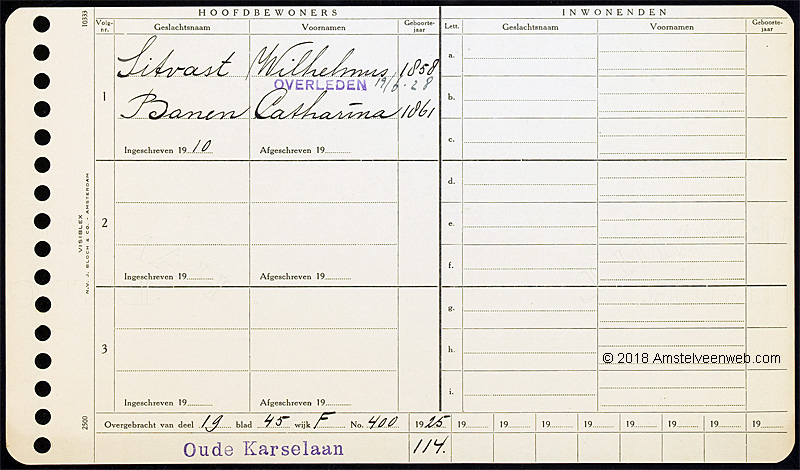 HOOFDBEWONERS INWONENDEN
Volg-nr. Geslachtsnaam Voornamen Geboorte-jaar Lett. Geslachtsnaam Voornamen Geboorte-jaar
10333
1 Sitvast Wilhelmus 1858 a.
OVERLEDEN 19/6-28 b.
Banen Catharina 1861
Ingeschreven 1910 Afgeschreven 19 c.
d.
2 e.
Ingeschreven 19 Afgeschreven 19 f.
VISIBLEX
N.V. J. BLOCH & CO. - AMSTERDAM
g.
3 h.
© 2018 Amstelveenweb.com
Ingeschreven 19 Afgeschreven 19 i.
2500
Overgebracht van deel 19 blad 45 wijk F No. 400 1925 19 19 19 19 19 19 19 19
Oude Karselaan 114.